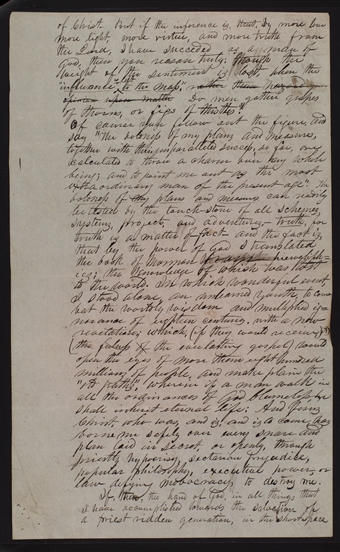 of Christ. But if the inference is, that, by more love
more light, more virtue, and more truth from
the Lord, I have succeeded as a man of
God, then you reason truly; though the
weight of the sentiment is lost, when the
"influence" is
Do men gather grapes
of thorns, or figs of thistles?
Of course you follow out the figure, and
say "the boldness of my plans and measures,
together with their unparalleled success, so far, are
calculated to throw a charm over my whole
being; and to point me out as the most
extraordinary man of the present age." The
boldness of my plans and measures can readily
be tested by the touch-stone of all schemes,
systems, projects, and adventures,—truth, for
truth is a matter of fact—and the fact is,
that by the power of God I translated
the book of Mormon from hieroglyph-
ics; the knowledge of which was lost
to the world. In which wonderful event,
I stood alone, an unlearned youth, to com-
bat the worldly wisdom and multiplied ig-
norance of eighteen centuries, with a new
revelation; which, (if they would receive)
(the fulness of the everlasting gospel,) would
open the eyes of more than eight hundred
millions of people, and make plain the
"old paths," wherein if a man walk in
all the ordinances of God blameless, he
shall inherit eternal life: And Jesus
Christ, who was, and is, and is to come, has
borne me safely over every snare and
plan laid in secret or openly, through
priestly hypocrisy, sectarian prejudice,
popular philosophy, executive power, or
law defying mobocracy to destroy me.
If, then, the hand of God, in all things that
I have accomplished towards the salvation of
a priest-ridden generation, in the short space